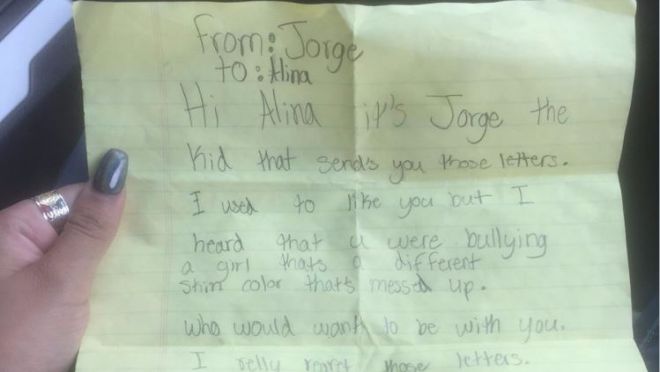 from: Jorge
to: Alina
Hi Alina it's Jorge the
kid that send's you those letters.
I used to like you but I
heard that u were bullying
a girl thats a different
skin color that's messed up.
who would want to be with you.
I relly regret those letters.